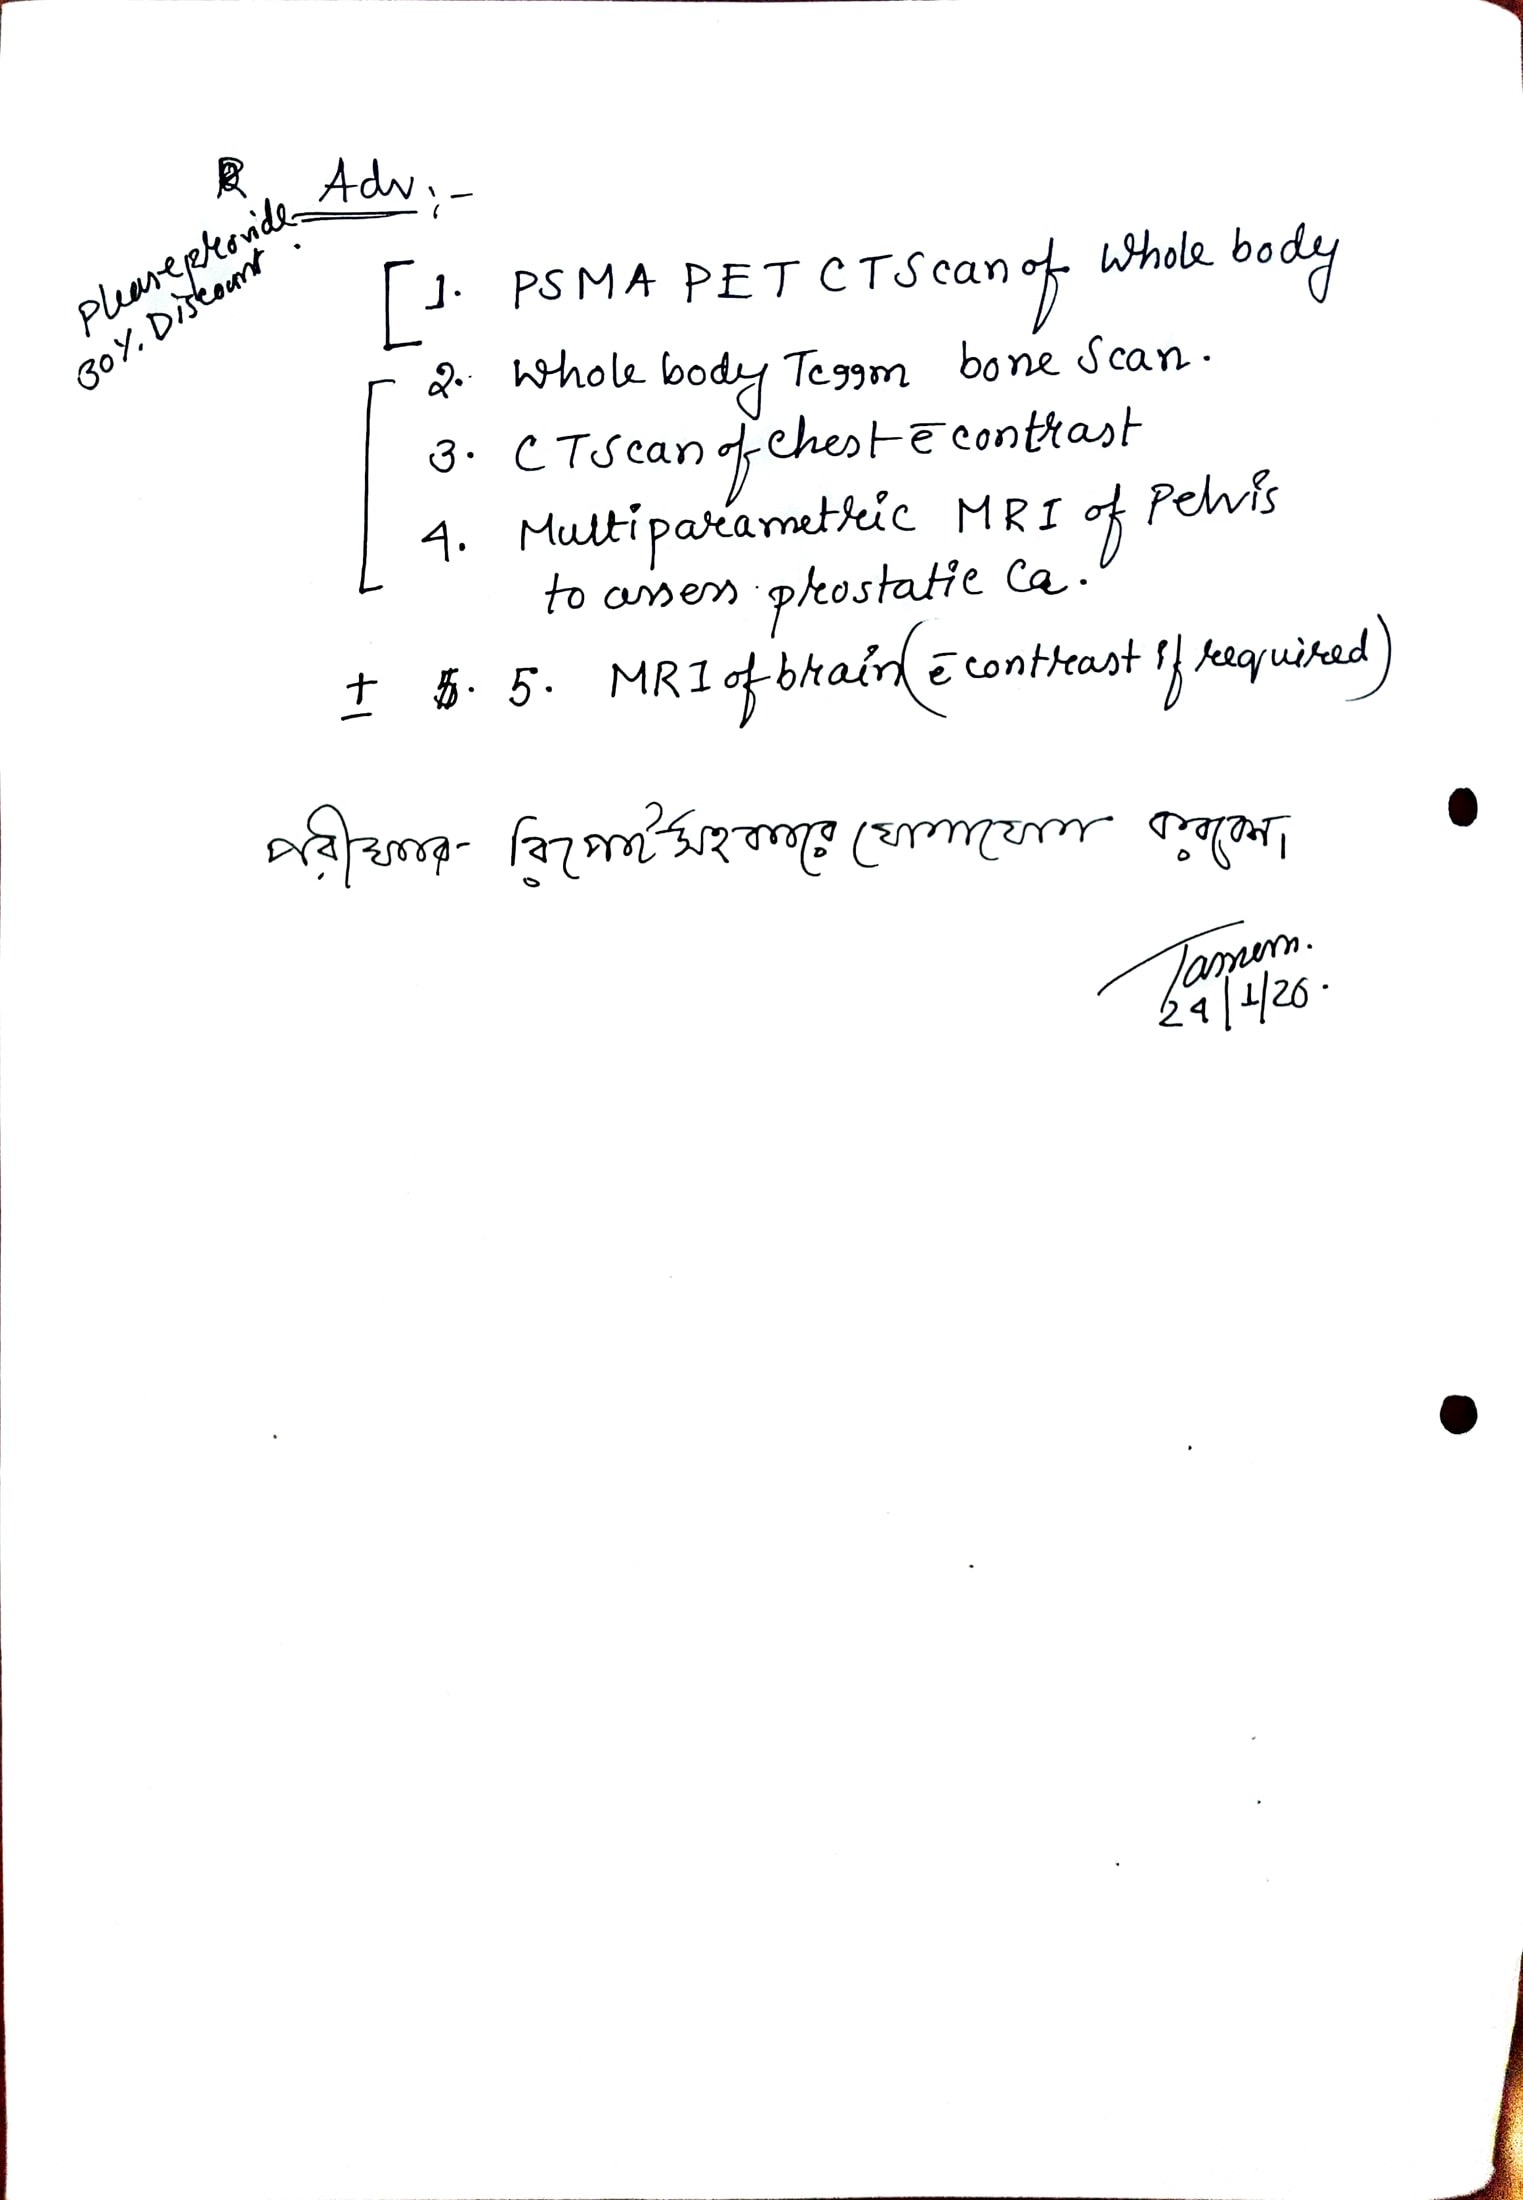 Adv:-
Please provide
30%. Discount.
[1. PSMA PET CT Scan of Whole body
2. Whole body Tc99m bone Scan.
3. CT Scan of Chest c̄ contrast
4. Multiparametric MRI of Pelvis
to assess prostatic Ca.
± 5. MRI of brain (c̄ contrast if required)
পরীক্ষার রিপোর্ট সহকারে যোগাযোগ করবেন।
24/1/26.